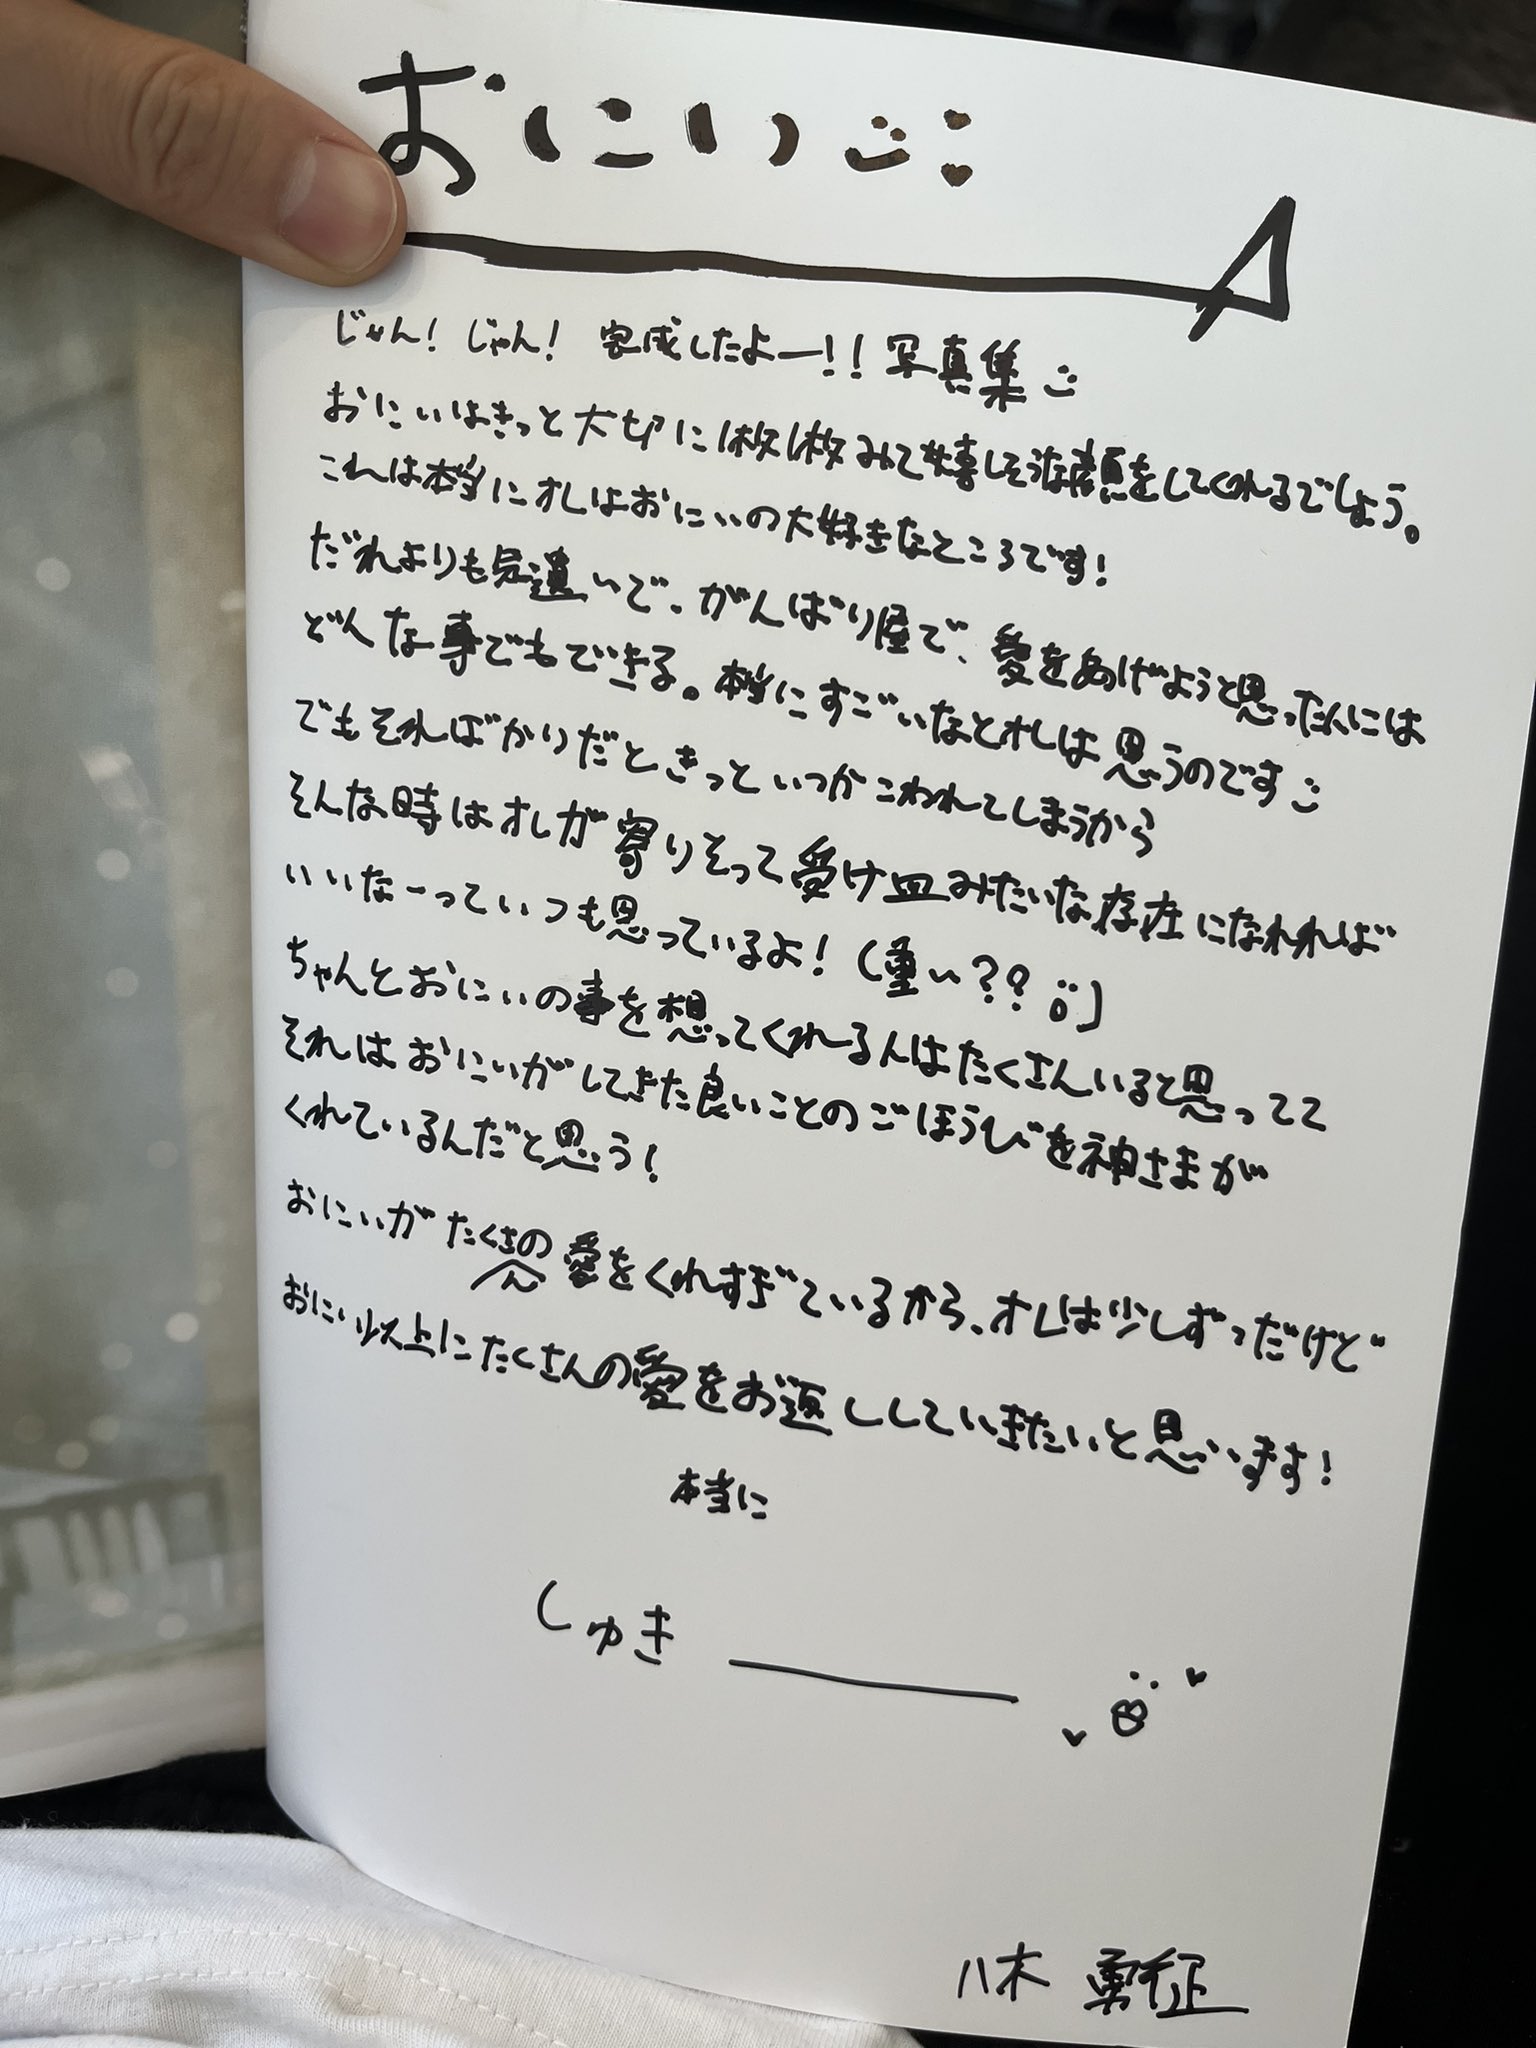 おにい
じゃん！じゃん！完成したよー！！写真集
おにいはきっと大切に1枚1枚みて嬉しそうな顔をしてくれるでしょう。
これは本当にオレはおにいの大好きなところです！
だれよりも気遣いで、がんばり屋で、愛をあげようと思った人には
どんな事でもできる。本当にすごいなとオレは思うのです
でもそればかりだときっといつかこわれてしまうから
そんな時はオレが寄りそって受け皿みたいな存在になれれば
いいなーっていつも思っているよ！（重い？？）
ちゃんとおにいの事を想ってくれる人はたくさんいると思ってて
それはおにいがしてきた良いことのごほうびを神さまが
くれているんだと思う！
おにいがたくさんの愛をくれすぎているから、オレは少しずつだけど
おにい以上にたくさんの愛をお返ししていきたいと思います！
本当に
しゅきー
八木 勇征